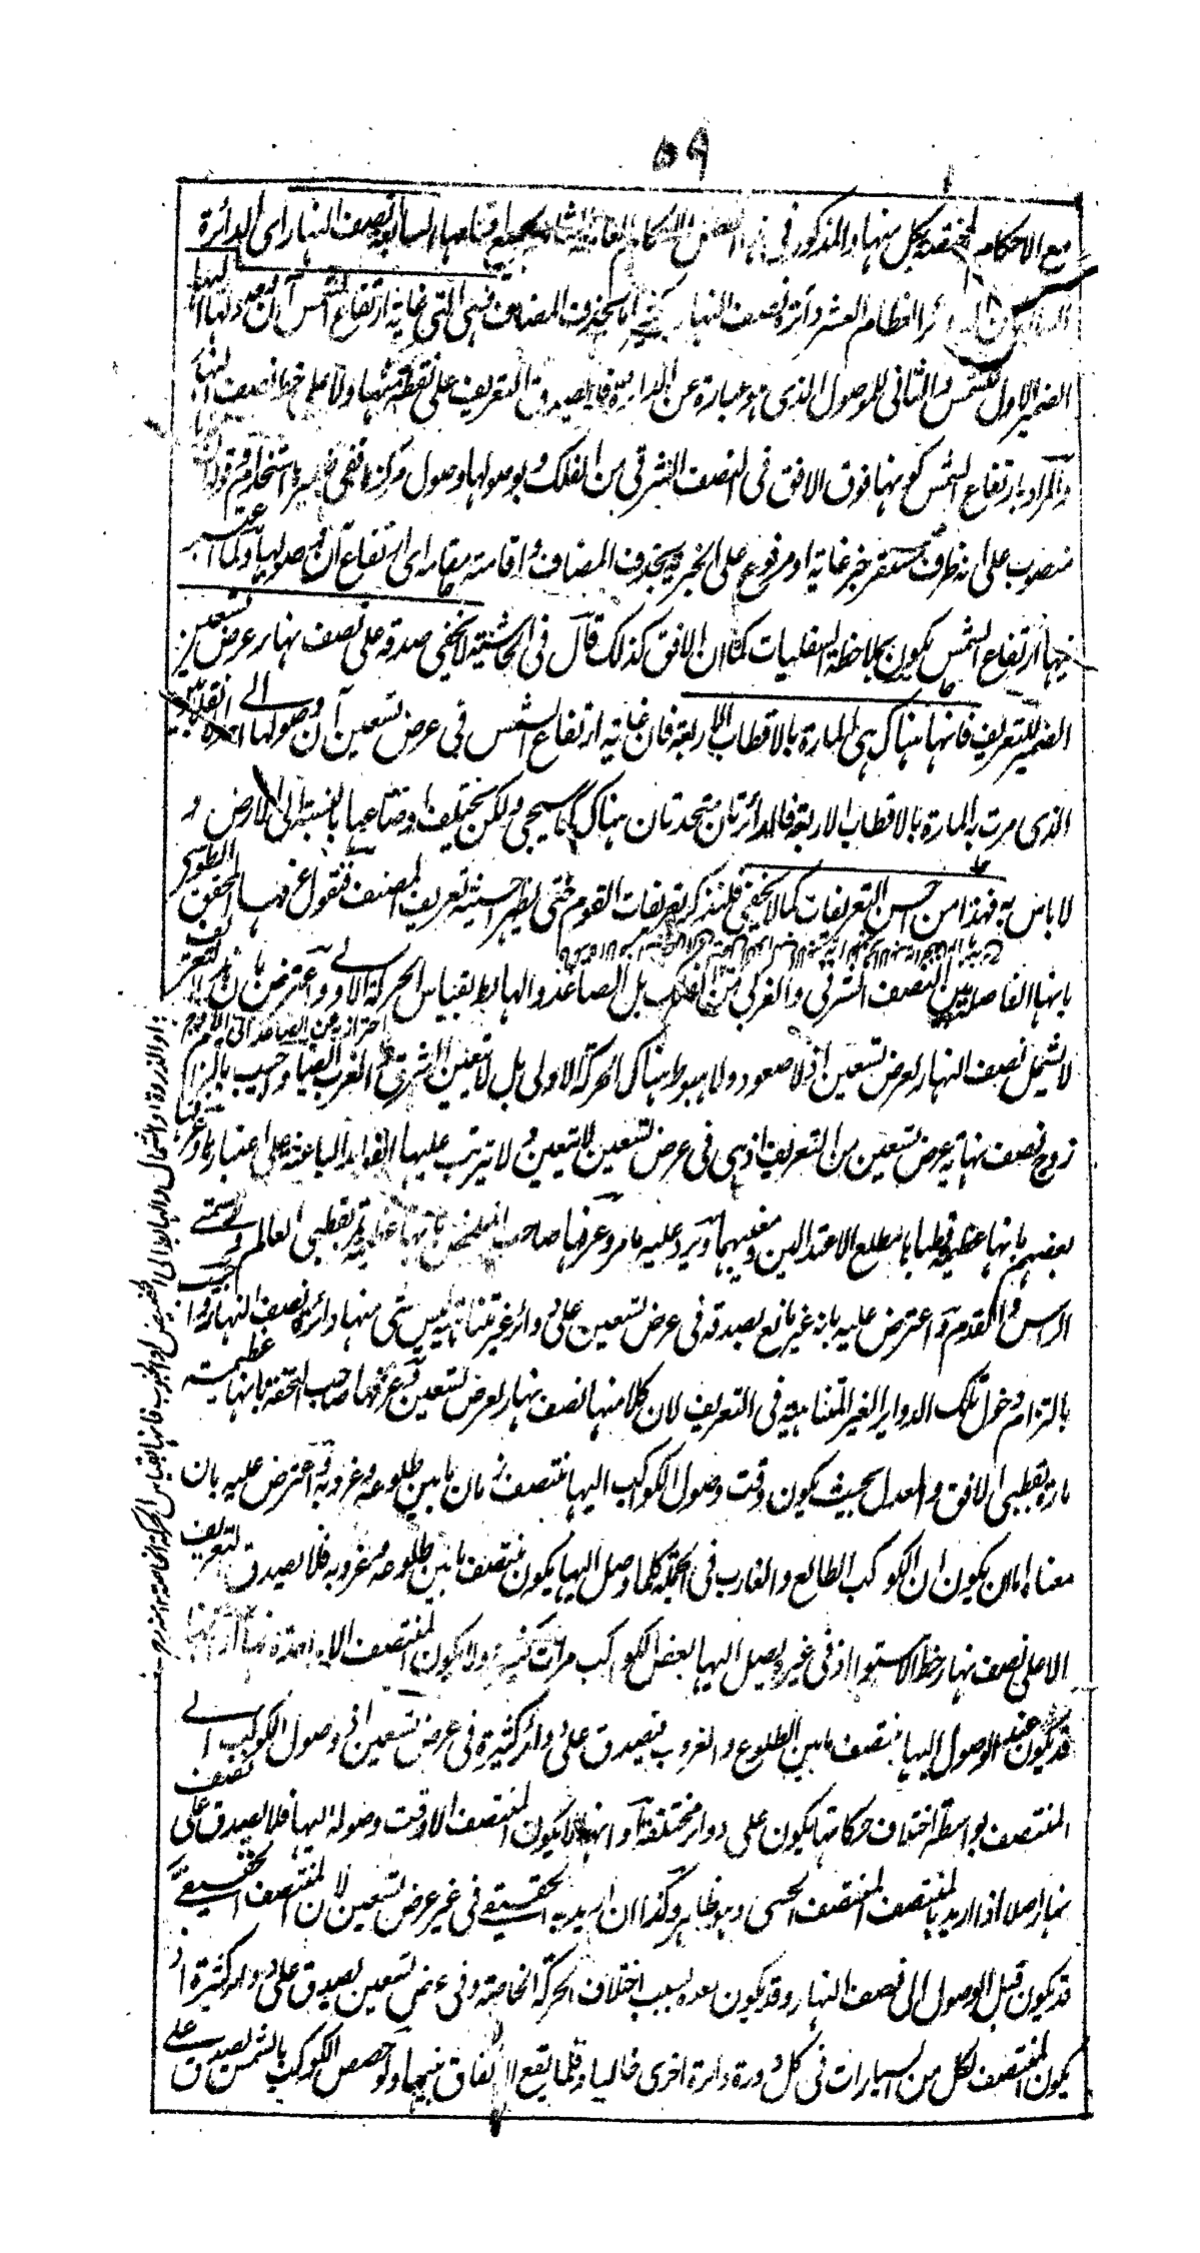 ٥٩
مع الاحكام المختصة بكل منها والمذكور في هذا الاحكام العامة باقسامها السابعة نصف النهار اى الدائرة
العظام العشر دائرة نصف النهار بحذف المضاف هي التي غاية ارتفاع الشمس آن وصولها اليها
الضمير الاول للشمس والثاني للموصول الذي هو عبارة عن الدائرة فلا يصدق التعريف على نقطة منها ولا على خط نصف النهار
والمراد بارتفاع الشمس كونها فوق الافق في النصف الشرقي من الفلك وبوصولها وصول مركزها ففي ضميرها استخدام وقوله آن
منصوب على انه ظرف مستقر خبر غاية او مرفوع على الخبرية بحذف المضاف واقامته مقامه اى ارتفاع آن وصولها ولما اعتبر
فيها ارتفاع الشمس يكون بملاحظة السفليات كما ان الافق كذلك قال في الحاشية لا يخفى صدقه على نصف نهار عرض تسعين
الضمير للتعريف فانها هناك هي المارة بالاقطاب الاربعة فان غاية ارتفاع الشمس في عرض تسعين آن وصولها الى احد الانقلابين
الذى مرت به المارة بالاقطاب الاربعة فالدائرتان متحدتان هناك كما سيجي ولكن يختلف اوضاعها بالنسبة الى الارض و
لا باس به فهذا من احسن التعريفات كما لا يخفى فلنذكر تعريفات القوم حتى يظهر احسنية تعريف المصنف فنقول عرفها المحقق الطوسى
بانها الفاصلة بين النصف الشرقي والغربي من الفلك بل الصاعد والهابط بقياس الحركة الاولى واعترض بان هذا التعريف
لا يشمل نصف النهار لعرض تسعين اذ لا صعود ولا هبوط هناك بالحركة الاولى بل لا يتعين الشرق والغرب ايضا واجيب بالتزام
خروج نصف نهار عرض تسعين من التعريف اذ هي في عرض تسعين لا يتعين ولا يترتب عليها الفوائد الباعثة على اعتبارها وعرفها
بعضهم بانها عظيمة قطباها مطلع الاعتدالين ومغيبهما ويرد عليه ما مر وعرفها صاحب الملخص بانها عظيمة تمر بقطبي العالم وسمتي
الراس والقدم واعترض عليه بانه غير مانع بصدقه في عرض تسعين على دوائر غير متناهية ليس شئ منها دائرة نصف النهار واجيب
بالتزام دخول تلك الدواير الغير المتناهية في التعريف لان كلا منها نصف نهار لعرض تسعين وعرفها صاحب التحفة بانها عظيمة
مارة بقطبي الافق والمعدل بحيث يكون وقت وصول الكواكب اليها منتصف زمان ما بين طلوعه وغروبه واعترض عليه بان
معناه اما ان يكون ان الكوكب الطالع والغارب في الجملة كلما وصل اليها يكون منتصف ما بين طلوعه وغروبه فلا يصدق التعريف
الا على نصف نهار خط الاستواء اذ في غيره يصل اليها بعض الكواكب مرات كثيرة ولا يكون المنتصف الا واحدة منها او انها
قد يكون عند الوصول اليها منتصف ما بين الطلوع والغروب فيصدق على دوائر كثيرة في عرض تسعين اذ وصول الكوكب الى
المنتصف بواسطة اختلاف حركاتها يكون على دوائر مختلفة او انها لا يكون المنتصف الا وقت وصوله اليها فلا يصدق على نصف
نهار اصلا اذا اريد بالمنتصف المنتصف الحسى وهو ظاهر وكذا ان اريد به الحقيقي في غير عرض تسعين لان المنتصف الحقيقي
قد يكون قبل الوصول الى نصف النهار وقد يكون بعده بسبب اختلاف الحركة الخاصة وفي عرض تسعين يصدق على دوائر كثيرة اذ
يكون المنتصف لكل من السيارات في كل دورة دائرة اخرى غالبا وقلما يقع الاتفاق بينهما ولو خصص الكوكب بالشمس يصدق على